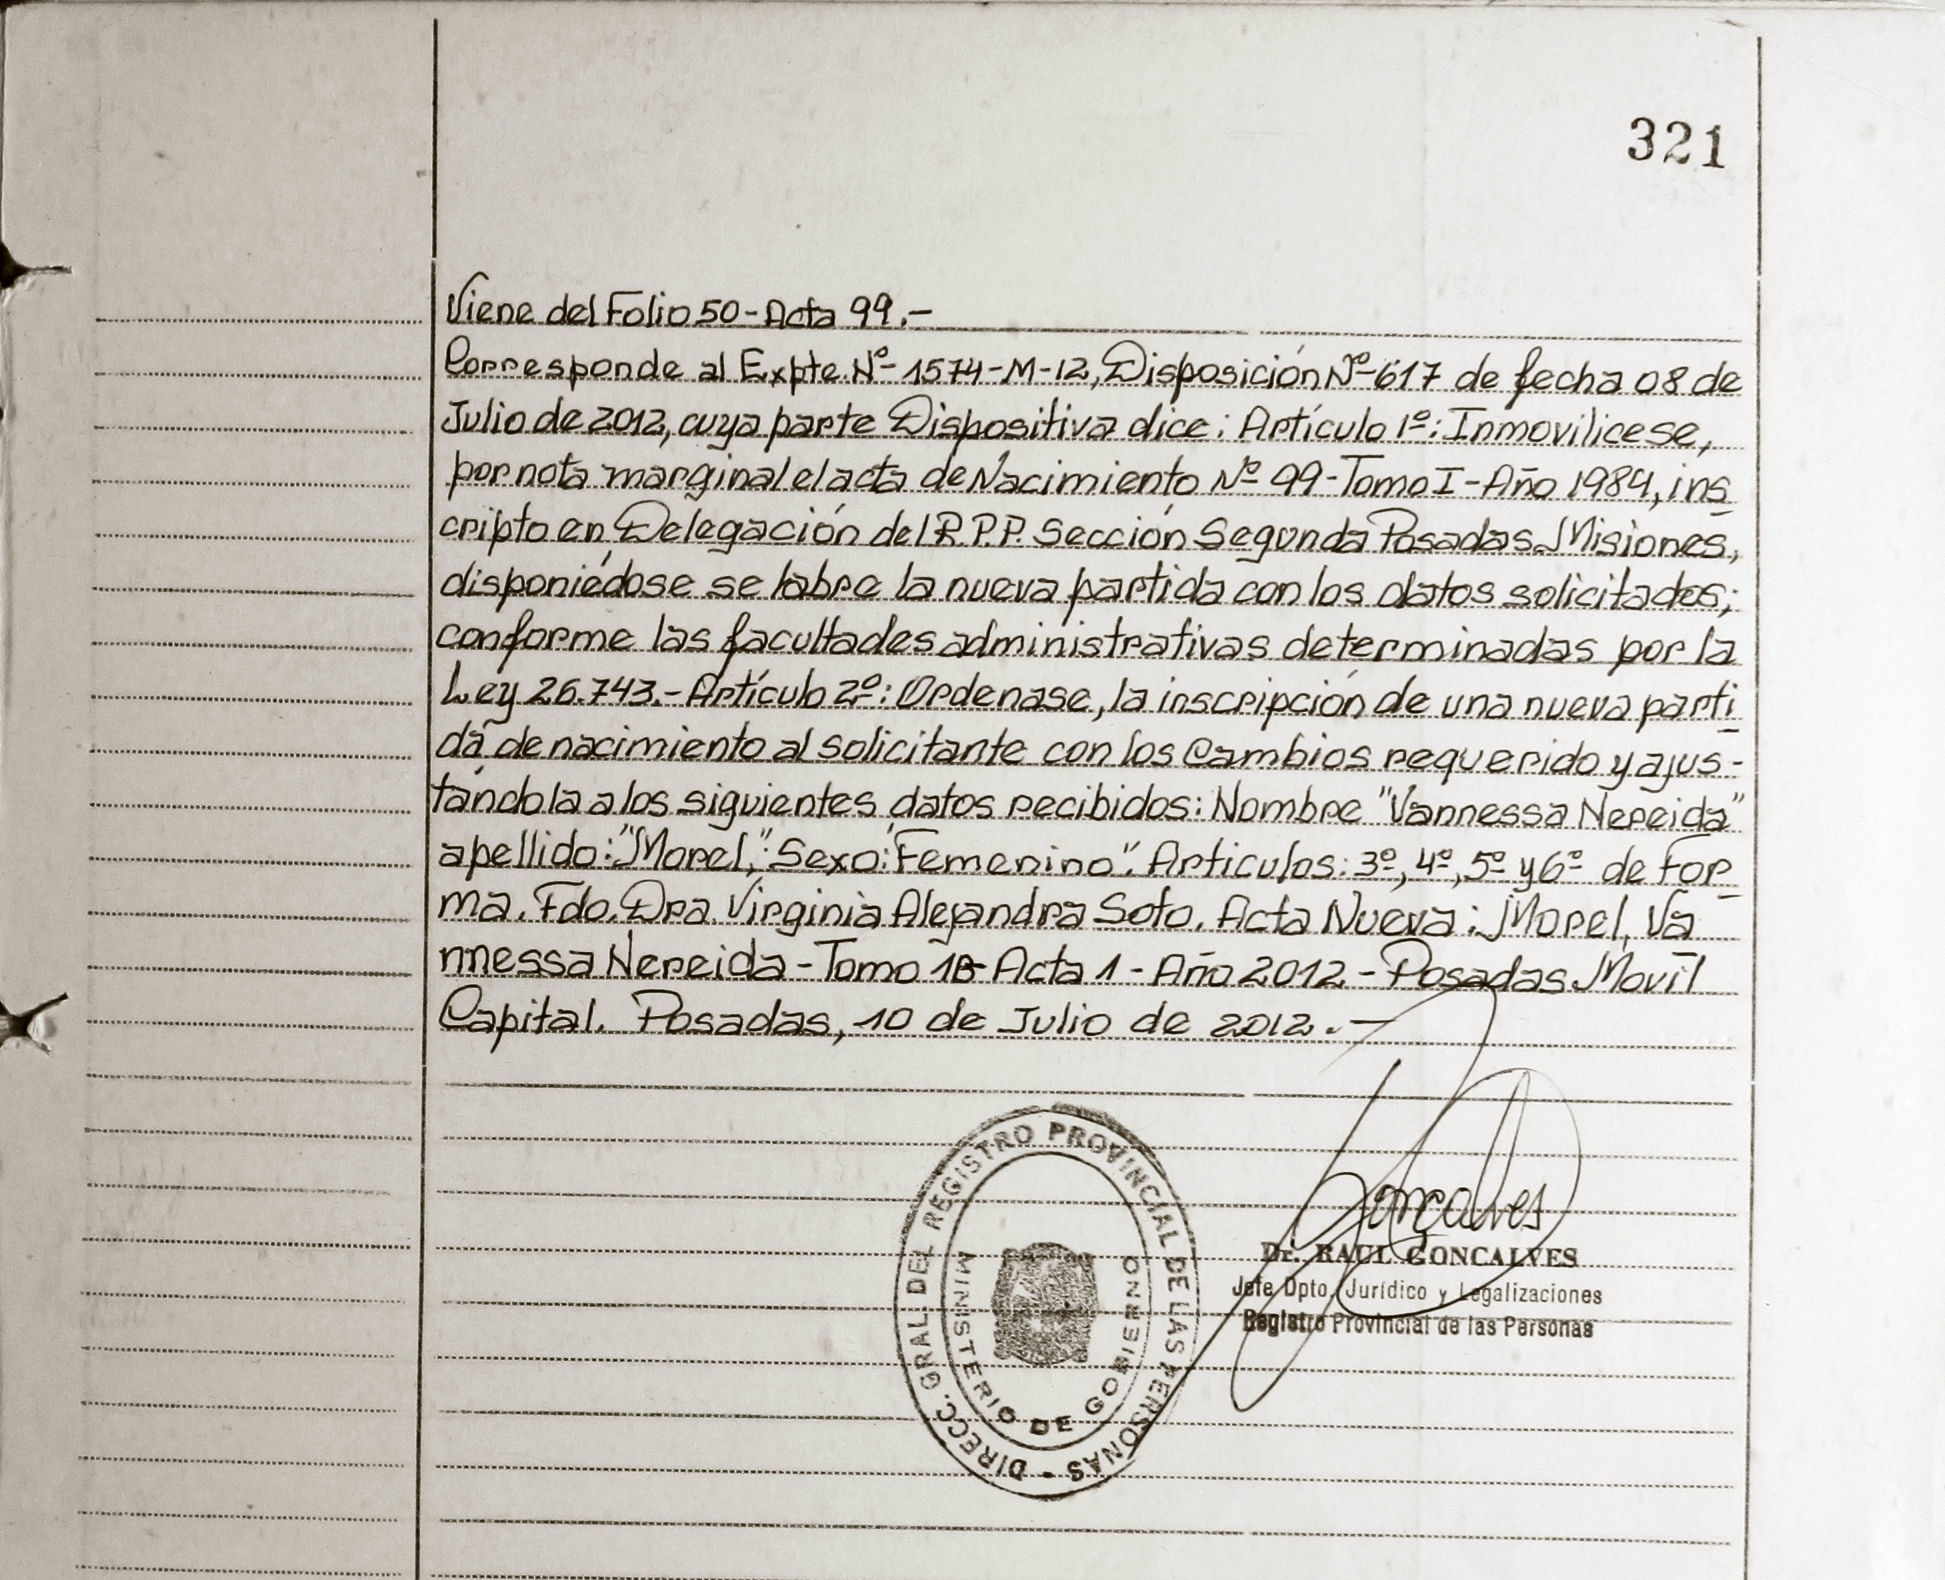 321
Viene del Folio 50-Acta 99.-
Corresponde al Expte.Nº-1574-M-12, Disposición Nº-617 de fecha 08 de
Julio de 2012, cuya parte Dispositiva dice: Artículo 1º: Inmovilicese,
por nota marginal el acta de Nacimiento Nº 99-Tomo I-Año 1984, ins
cripto en Delegación del R.P.P. Sección Segunda Posadas Misiones,
disponiédose se labre la nueva partida con los datos solicitados;
conforme las facultades administrativas determinadas por la
Ley 26.743.- Artículo 2º: Ordenase, la inscripción de una nueva parti
da de nacimiento al solicitante con los Cambios requerido y ajus-
tándola a los siguientes datos recibidos: Nombre "Vannessa Nereida"
apellido: "Morel," Sexo: "Femenino". Articulos: 3º, 4º, 5º y 6º de For
ma. Fdo. Dra. Virginia Alejandra Soto. Acta Nueva: Morel, Va
nnessa Nereida - Tomo 1B Acta 1 - Año 2012 - Posadas Movil
Capital. Posadas, 10 de Julio de 2012.-
DIRECC. GRAL. DEL REGISTRO PROVINCIAL DE LAS PERSONAS -
MINISTERIO DE GOBIERNO
Gonçalves
Dr. RAUL GONCALVES
Jefe Dpto. Jurídico y Legalizaciones
Registro Provincial de las Personas